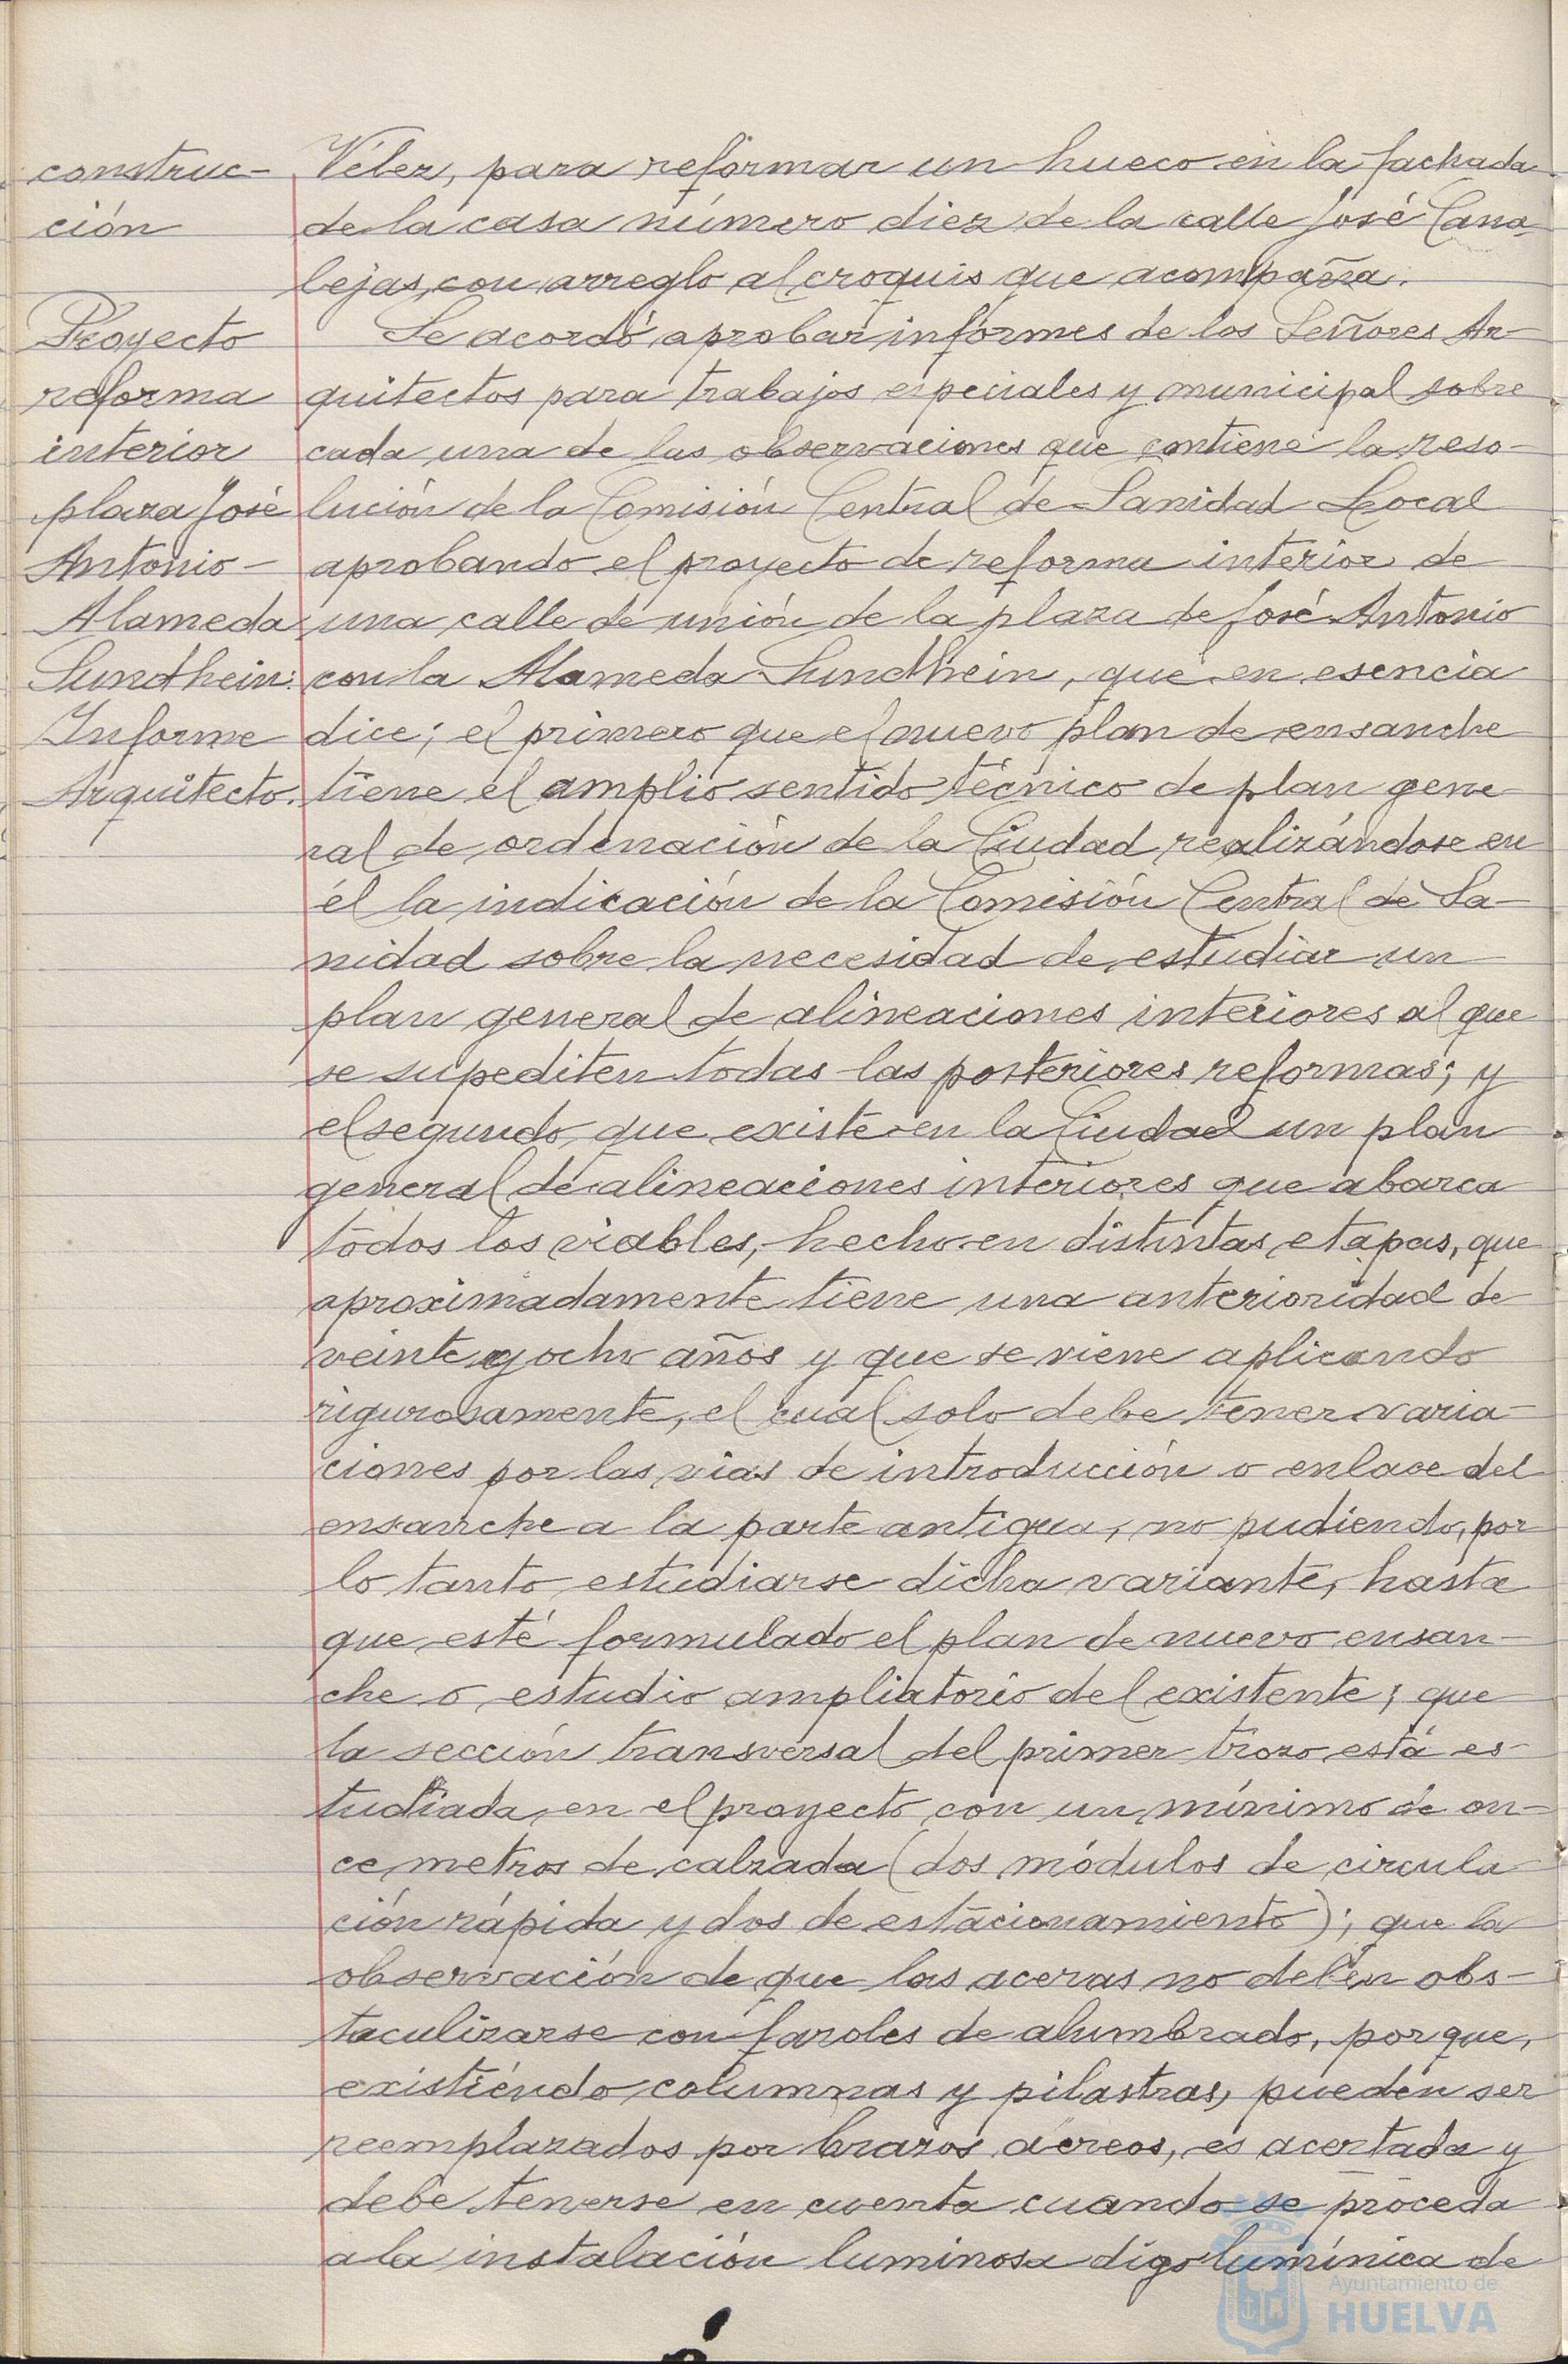 construc-
ción
Proyecto
reforma
interior
plaza José
Antonio-
Alameda
Sundhein:
Informe
Arquitecto.
Vélez, para reformar un hueco en la fachada
de la casa número diez de la calle José Cana-
lejas, con arreglo al croquis que acompaña.
Se acordó aprobar informes de los Señores Ar-
quitectos para trabajos especiales y municipal sobre
cada una de las observaciones que contiene la reso-
lución de la Comisión Central de Sanidad Local
aprobando el proyecto de reforma interior de
una calle de unión de la plaza de José Antonio
con la Alameda Sundhein, que en esencia
dice; el primero que el nuevo plan de ensanche
tiene el amplio sentido técnico de plan gene-
ral de ordenación de la Ciudad realizándose en
él la indicación de la Comisión Central de Sa-
nidad sobre la necesidad de estudiar un
plan general de alineaciones interiores al que
se supediten todas las posteriores reformas; y
el segundo, que existe en la Ciudad un plan
general de alineaciones interiores que abarca
todos los viables, hecho en distintas etapas, que
aproximadamente tiene una anterioridad de
veinte y ocho años y que se viene aplicando
rigurosamente, el cual solo debe tener varia-
ciones por las vias de introducción o enlace del
ensanche a la parte antigua, no pudiendo, por
lo tanto estudiarse dicha variante, hasta
que esté formulado el plan de nuevo ensan-
che o estudio ampliatorio del existente; que
la sección transversal del primer trozo está es-
tudiada en el proyecto con un mínimo de on-
ce metros de calzada (dos módulos de circula-
ción rápida y dos de estacionamiento); que la
observación de que las aceras no deben obs-
taculizarse con faroles de alumbrado, porque,
existiendo columnas y pilastras, pueden ser
reemplazados por brazos aéreos, es acertada y
debe tenerse en cuenta cuando se proceda
a la instalación luminosa digo lumínica de
Ayuntamiento de
HUELVA